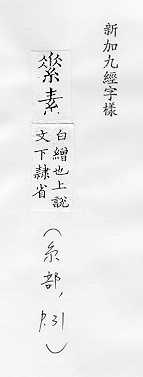 新加九經字樣
𦃃素
白繒也上說
文下隸省
(糸部,
p.31)